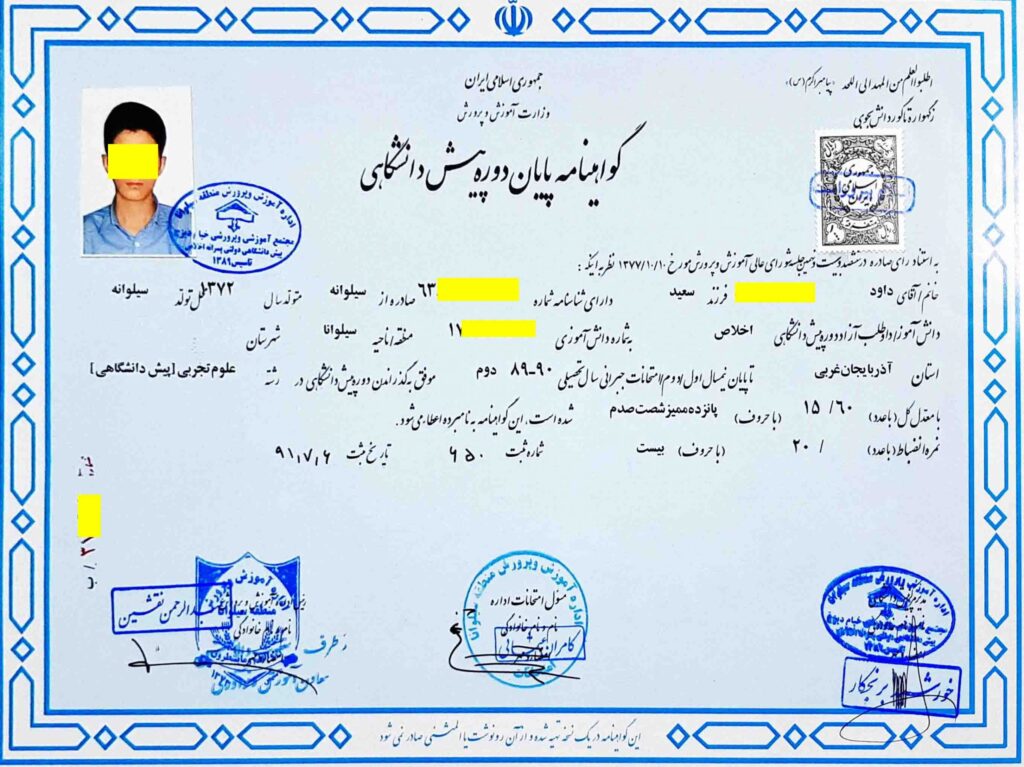 جمهوری اسلامی ایران
وزارت آموزش و پرورش
اطلبوا العلم من المهد الی اللحد «پیامبر اکرم (ص)»
ز گهواره تا گور دانش بجوی
گواهینامه پایان دوره پیش دانشگاهی
جمهوری اسلامی ایران
اداره آموزش وپرورش منطقه سیلوانا
مجتمع آموزشی وپرورشی خیام دیزج
پیش دانشگاهی دولتی پسرانه اخلاص
تاسیس ۱۳۸۹
به استناد رای صادره در ششصد و بیست و نهمین جلسه شورای عالی آموزش و پرورش مورخ ۱۳۷۷/۱۰/۱۰ نظر به اینکه :
خانم / آقای داود فرزند سعید دارای شناسنامه شماره ۶۳ صادره از سیلوانه متولد سال ۱۳۷۲ محل تولد سیلوانه
دانش آموز / داوطلب آزاد دوره پیش دانشگاهی اخلاص به شماره دانش آموزی ۱۷ منطقه / ناحیه سیلوانا شهرستان
استان آذربایجان غربی تا پایان نیمسال اول / دوم / امتحانات جبرانی سال تحصیلی ۹۰-۸۹ دوم موفق به گذراندن دوره پیش دانشگاهی در رشته علوم تجربی [پیش دانشگاهی]
با معدل کل (با عدد) ۱۵/۶۰ (با حروف) پانزده ممیز شصت صدم شده است. این گواهینامه به نامبرده اعطاء می شود.
نمره انضباط (با عدد) ۲۰/ (با حروف) بیست شماره ثبت ۶۵۰ تاریخ ثبت ۹۱,۷,۶
شماره ۳۱ / ب
آموزش وپرورش
منطقه سیلوانا
رئیس اداره آموزش و پرورش
نام و نام خانوادگی
عبدالرحمن نقشین
از طرف
معاون آموزشی
اداره آموزش وپرورش منطقه سیلوانا
مسئول امتحانات اداره
نام و نام خانوادگی
کامران
امتحانات
اداره آموزش وپرورش منطقه سیلوانا
نام و نام خانوادگی
مجتمع آموزشی وپرورشی خیام دیزج
تاسیس ۱۳۸۹
خورشید برنجکار
این گواهینامه در یک نسخه تهیه شده و از آن رونوشت یا المثنی صادر نمی شود